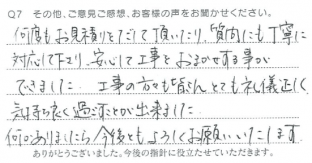 Q7 その他、ご意見ご感想、お客様の声をお聞かせください。
何度もお見積りとだして頂いたり、質問にも丁寧に
対応して下さり、安心して工事とおまかせする事が
できました。工事の方々も皆さん とても礼儀正しく
気持ち良く過ごすことが出来ました
何かありましたら今後ともよろしくお願いいたします
ありがとうございました。今後の指針に役立たせていただきます。